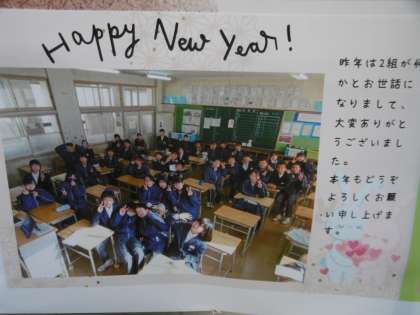 Happy New Year!
昨年は2組が何
かとお世話に
なりまして、
大変ありがと
うございまし
た。
本年もどうぞ
よろしくお願
い申し上げま
す。